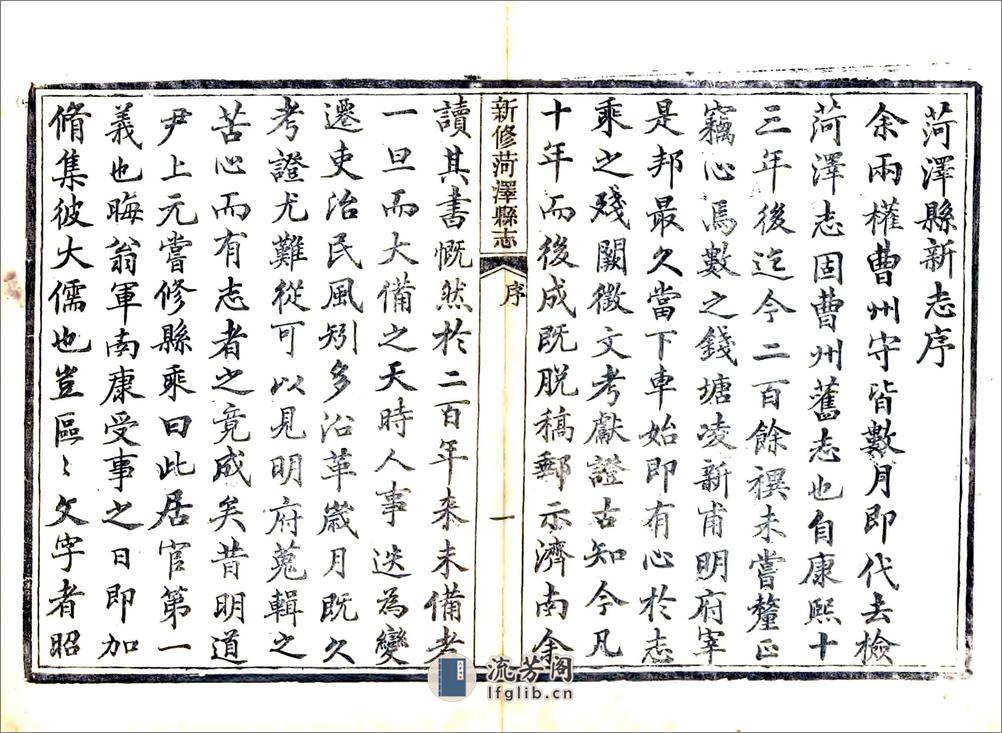 菏澤縣新志序
余兩權曹州守皆數月即代去檢
菏澤志固曹州舊志也自康熙十
三年後迄今二百餘禩未嘗釐正
竊心焉數之錢塘凌新甫明府宰
是邦最久當下車始即有心於志
乘之殘闕徵文考獻證古知今凡
十年而後成既脱稿郵示濟南余
新修菏澤縣志
序
一
讀其書慨然於二百年来未備者
一旦而大備之天時人事迭為變
遷吏治民風矧多沿革歲月既久
考證尤難從可以見明府蒐輯之
苦心而有志者之竟成矣昔明道
尹上元嘗修縣乘曰此居官第一
義也晦翁軍南康受事之日即加
脩集彼大儒也豈區〻文字者昭
流芳阁
lfglib.cn